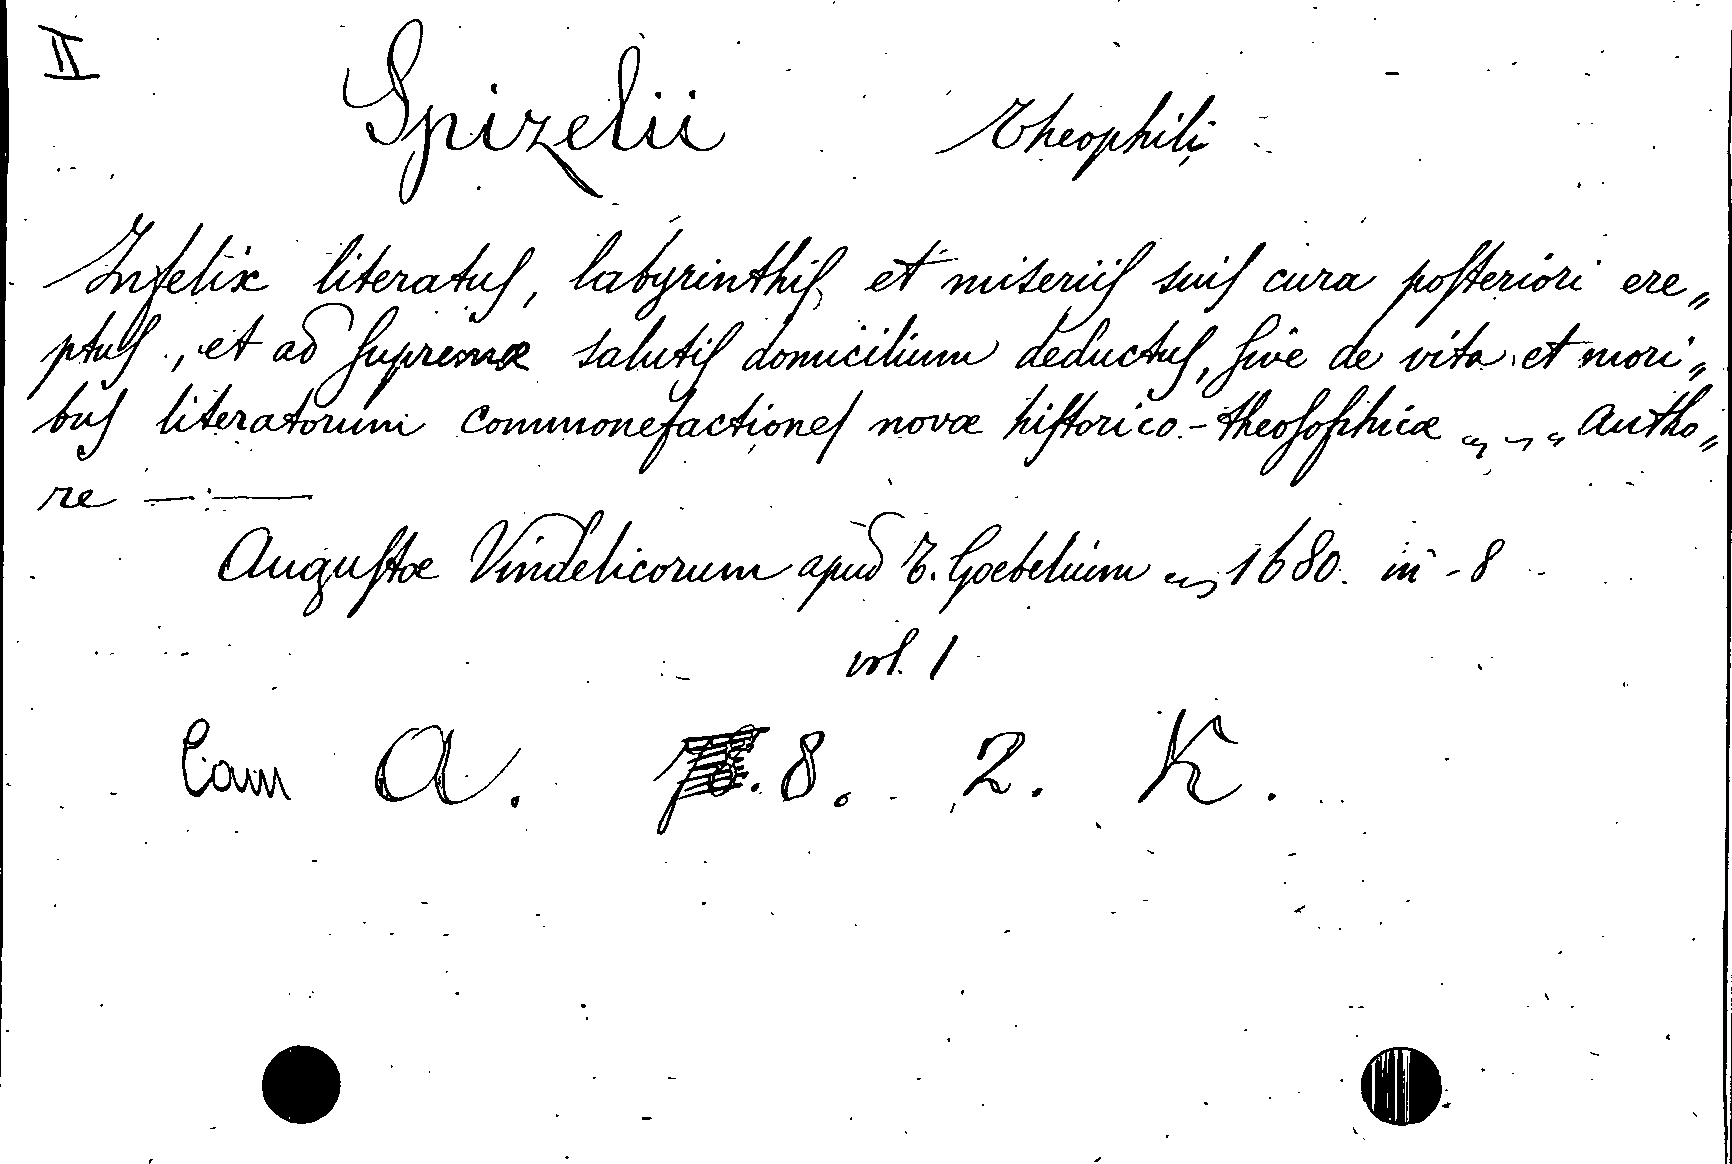 II
Spizelii Theophili
Infelix literatus, labyrinthis et miseriis suis cura posteriori ere„
ptus, et ad supremæ salutis domicilium deductus, sive de vita et mori„
bus literatorum commonefactiones novæ historico-theosophicæ „ „ „ Autho„
re —:—
Augustæ Vindelicorum apud T. Goebelium „ 1680. in-8
vol. 1
Cam A. 8. 2. K.